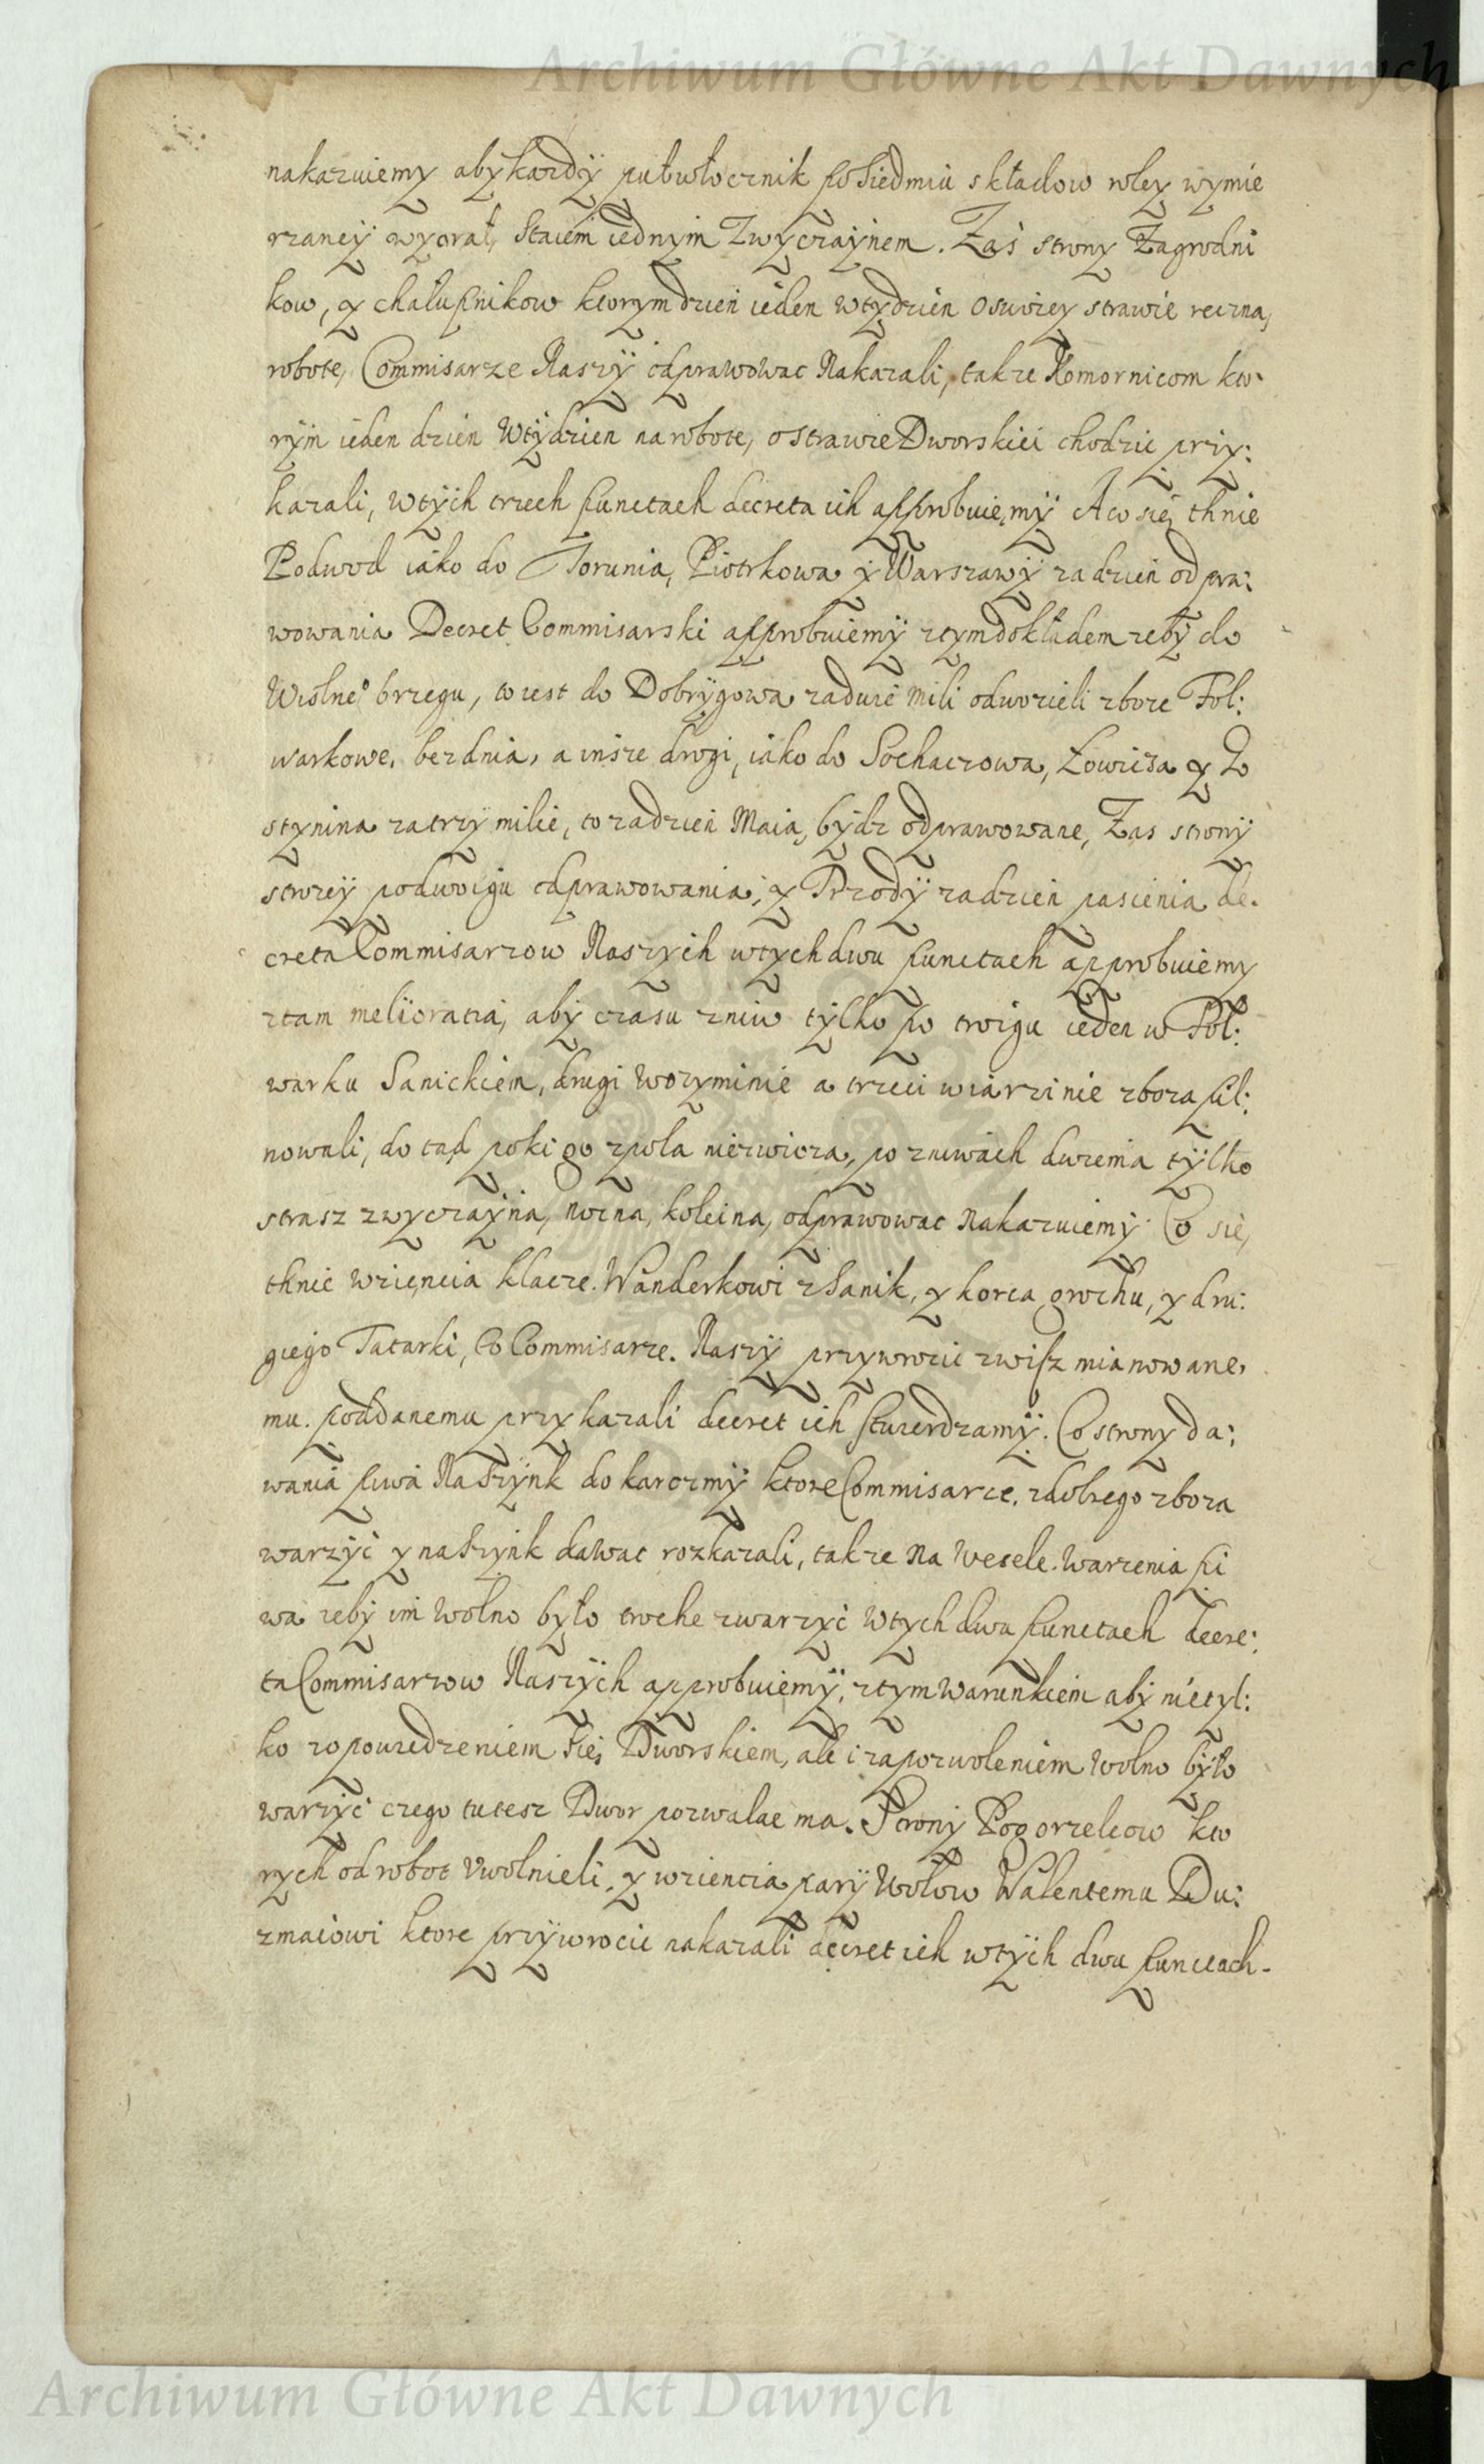 Archiwum Główne Akt Dawnych
nakazuiemy aby kazdÿ pułwłocznik po siedmiu składow roley wymie
rzaneÿ wyorał, staiem iednÿm Zwyczaÿnem. Zaś strony Zagrodni
kow, y chałupnikow ktorym dzień ieden wtydzień o swoiey strawie ręczną
robotę, Commisarze Naszÿ odprawowac Nakazali, takze Komornicom kto
rÿm ieden dzień wtÿdzien na robotę, o strawie Dworskiei chodzic przy:
kazali, wtÿch trzech punctach decreta ich approbuięmÿ A co się, thnie
Podwod iako do Torunia, Piotrkowa ÿ Warszawÿ za dzień odpra:
wowania Decret Commisarski approbuiemÿ ztym dokładem zebÿ do
Wiślne° brzegu, to iest do Dobrzÿgowa za dwie mili odwozieli zboze Fol:
warkowe, bez dnia, a insze drogi, iako do Sochaczowa, Łowicza y Go
stynina za trzy milie, to za dzień Maią bÿdz odprawowane, Zas stronÿ
strozeÿ podwoigu odprawowania, y Trzodÿ za dzień pasienia de.
creta Commisarzow Naszych wtych dwu punctach approbuiemy
ztam melioratią, abÿ czasu zniw tÿlko po troigu ieden w Fol:
warku Sanickiem, drugi wozyminie a trzeci wiarzinie zboza pil:
nowali, do tąd poki go zpola niezwiozą, po zniwach dwiema tÿlko
strasz zwyczaÿną, nocną, koleiną, odprawowac Nakazuiemÿ Co się,
thnie wzięncia klacze. Wanderkowi z Sanik, y korca grochu, y dru:
giego Tatarki, Co Commisarze. Naszÿ przywrocic zwisz mianowane,
mu. poddanemu przykazali decret ich stwierdzamÿ. Co strony da:
wania piwa Na szÿnk do karczmÿ ktore Commisarze. zdobrego zboza
warzÿć y na szÿnk dawac rozkazali, takze na wesele. warzenia pi
wa zebÿ im wolno było troche zwarzyć wtych dwu punctach decre:
ta Commisarzow Naszÿch approbuiemÿ, ztym warunkiem abÿ nietyl:
ko zopowiedzeniem się, Dworskiem, ale i zapozwoleniem wolno bÿło
warzÿć czego tutesz Dwor pozwalac ma. Stronÿ Pogorzelcow kto
rych od robot vwolnieli, y wziencia parÿ Wołow Walentemu Du:
zmaiowi ktore przÿwrocic nakazali decret ich wtÿch dwu punctach-
Archiwum Główne Akt Dawnych